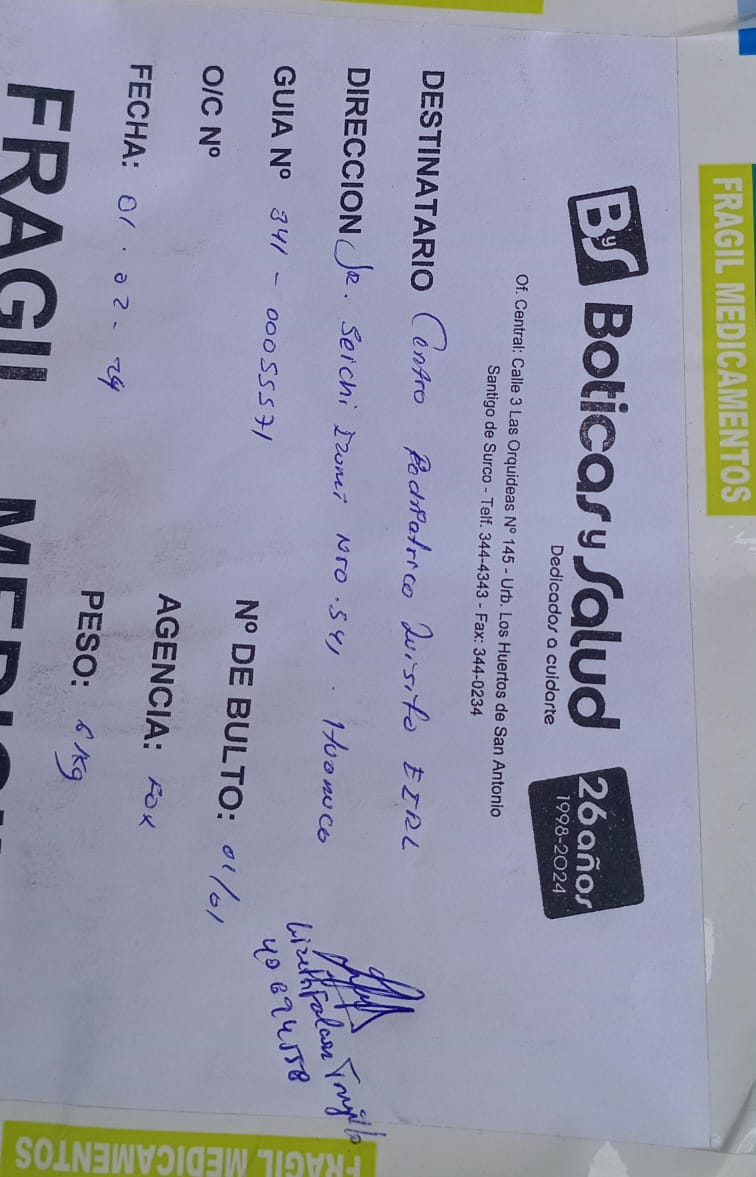 FRAGIL MEDICAMENTOS
ByS Boticas y Salud
Dedicados a cuidarte
26 años
1998-2024
Of. Central: Calle 3 Las Orquideas Nº 145 - Urb. Los Huertos de San Antonio
Santigo de Surco - Telf. 344-4343 - Fax: 344-0234
DESTINATARIO Centro Pediatrico Luisito EIRL
DIRECCION Jr. Seichi Izumi Nro. 541 . Huanuco
GUIA Nº 341 - 00055571
O/C Nº
Nº DE BULTO: 01/01
FECHA: 01 . 02 - 24
AGENCIA: Fox
PESO: 6 Kg
Lizeth Falcon Trujillo
FRAGIL
FRAGIL MEDICAMENTOS